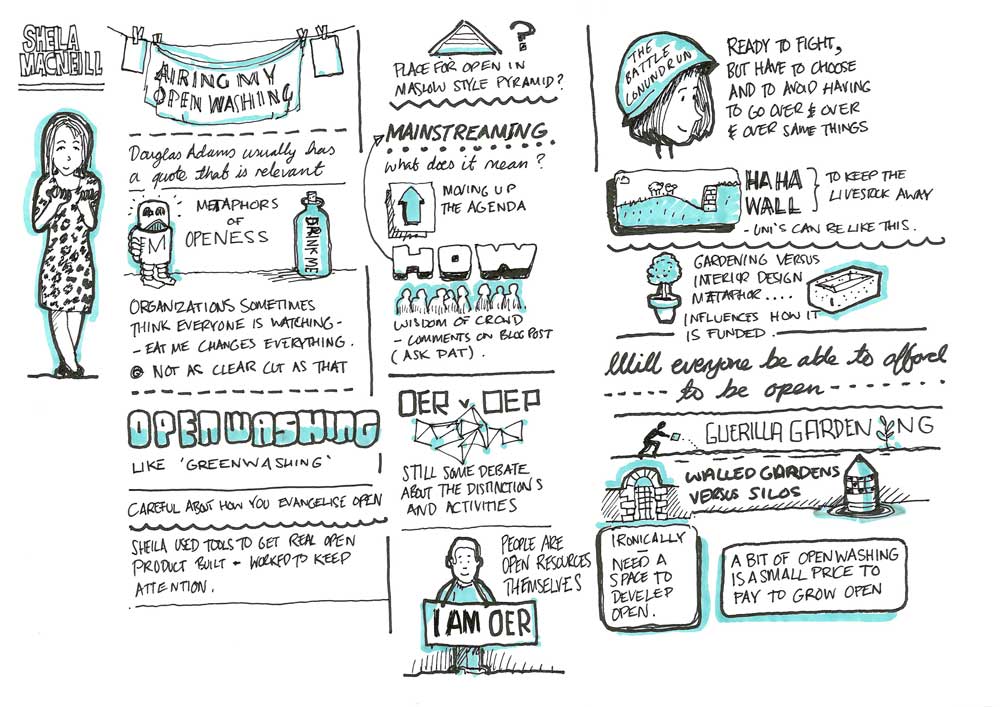 SHEILA
MACNEILL
AIRING MY
OPEN WASHING
Douglas Adams usually has
a quote that is relevant
METAPHORS
OF
OPENESS
M
DRINK ME
ORGANIZATIONS SOMETIMES
THINK EVERYONE IS WATCHING -
- EAT ME CHANGES EVERYTHING.
NOT AS CLEAR CUT AS THAT
OPENWASHING
LIKE 'GREENWASHING'
CAREFUL ABOUT HOW YOU EVANGELISE OPEN
SHEILA USED TOOLS TO GET REAL OPEN
PRODUCT BUILT - WORKED TO KEEP
ATTENTION.
?
PLACE FOR OPEN IN
MASLOW STYLE PYRAMID?
MAINSTREAMING
what does it mean?
MOVING UP
THE AGENDA
HOW
WISDOM OF CROWD
- COMMENTS ON BLOG POST
(ASK PAT).
OER v OEP
STILL SOME DEBATE
ABOUT THE DISTINCTIONS
AND ACTIVITIES
PEOPLE ARE
OPEN RESOURCES
THEMSELVES
I AM OER
THE
BATTLE
CONUNDRUM
READY TO FIGHT,
BUT HAVE TO CHOOSE
AND TO AVOID HAVING
TO GO OVER & OVER
& OVER SAME THINGS
HA HA
WALL
TO KEEP THE
LIVESTOCK AWAY
- UNI'S CAN BE LIKE THIS.
GARDENING VERSUS
INTERIOR DESIGN
METAPHOR....
INFLUENCES HOW IT
IS FUNDED.
Will everyone be able to afford
to be open
GUERILLA GARDENING
WALLED GARDENS
VERSUS SILOS
IRONICALLY
-
NEED A
SPACE TO
DEVELOP
OPEN.
A BIT OF OPENWASHING
IS A SMALL PRICE TO
PAY TO GROW OPEN